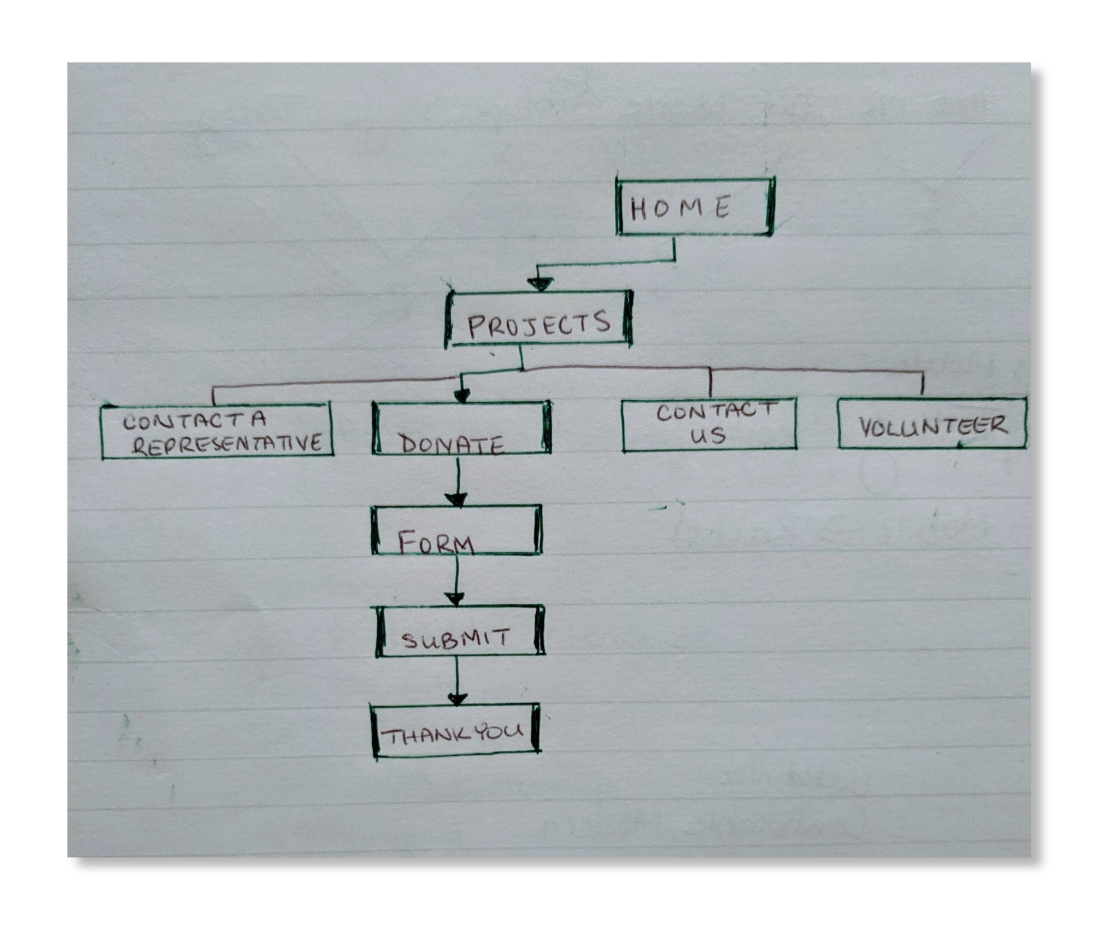 HOME
PROJECTS
CONTACT A
REPRESENTATIVE
DONATE
CONTACT
US
VOLUNTEER
FORM
SUBMIT
THANK YOU